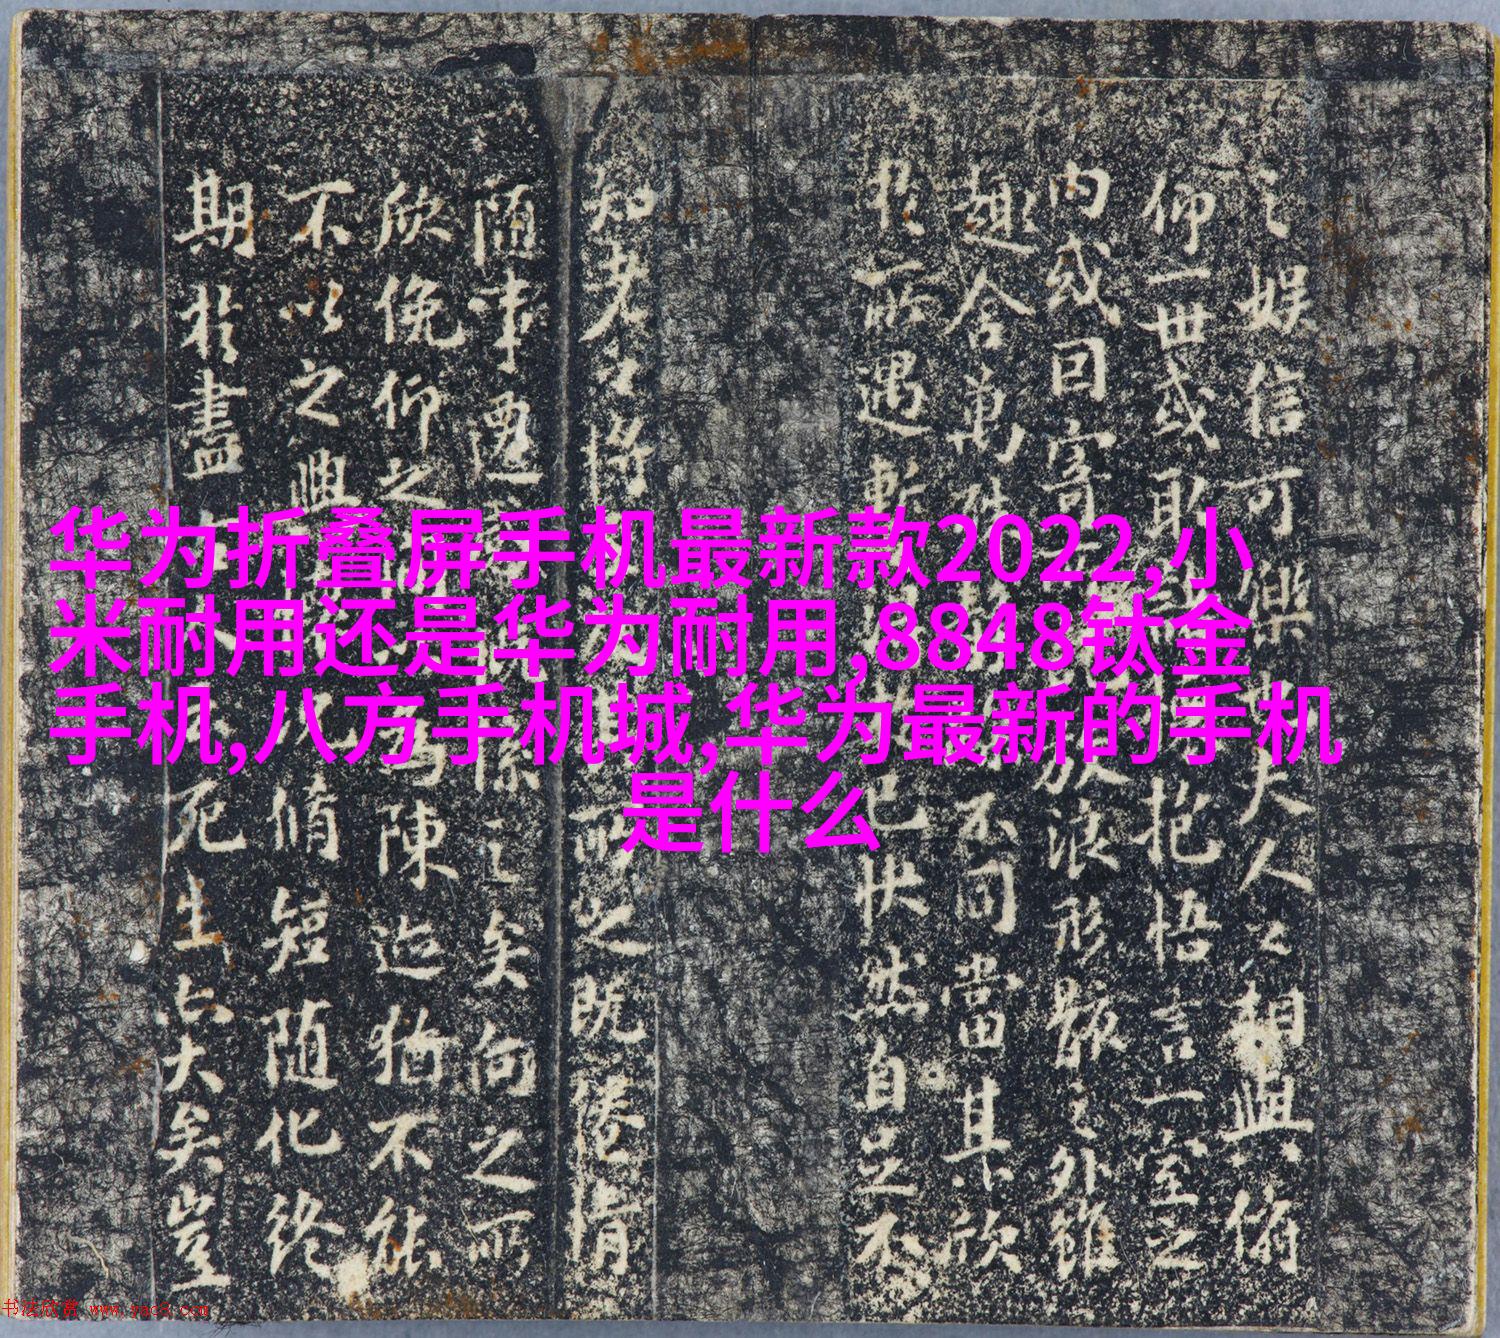 华为折叠屏手机最新款2022,小
米耐用还是华为耐用,8848钛金
手机,八方手机城,华为最新的手机
是什么
之娱信可樂夫人之相與俯
仰一世或取抱悟言一室之
内或因寄放浪形骸之外雖
趣舍萬殊不同當其欣
於所遇暫得己快然自足不
知老之將所之既倦情
随事遷係之矣向之所
欣俛仰之為陳迹猶不能
不以之興况脩短随化終
期於盡死生亦大矣豈
书法欣赏 www.yac8.com